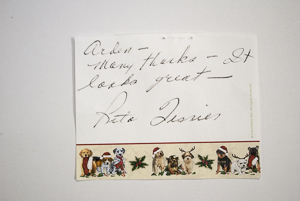 Arden –
Many thanks – It
looks great –
Rita